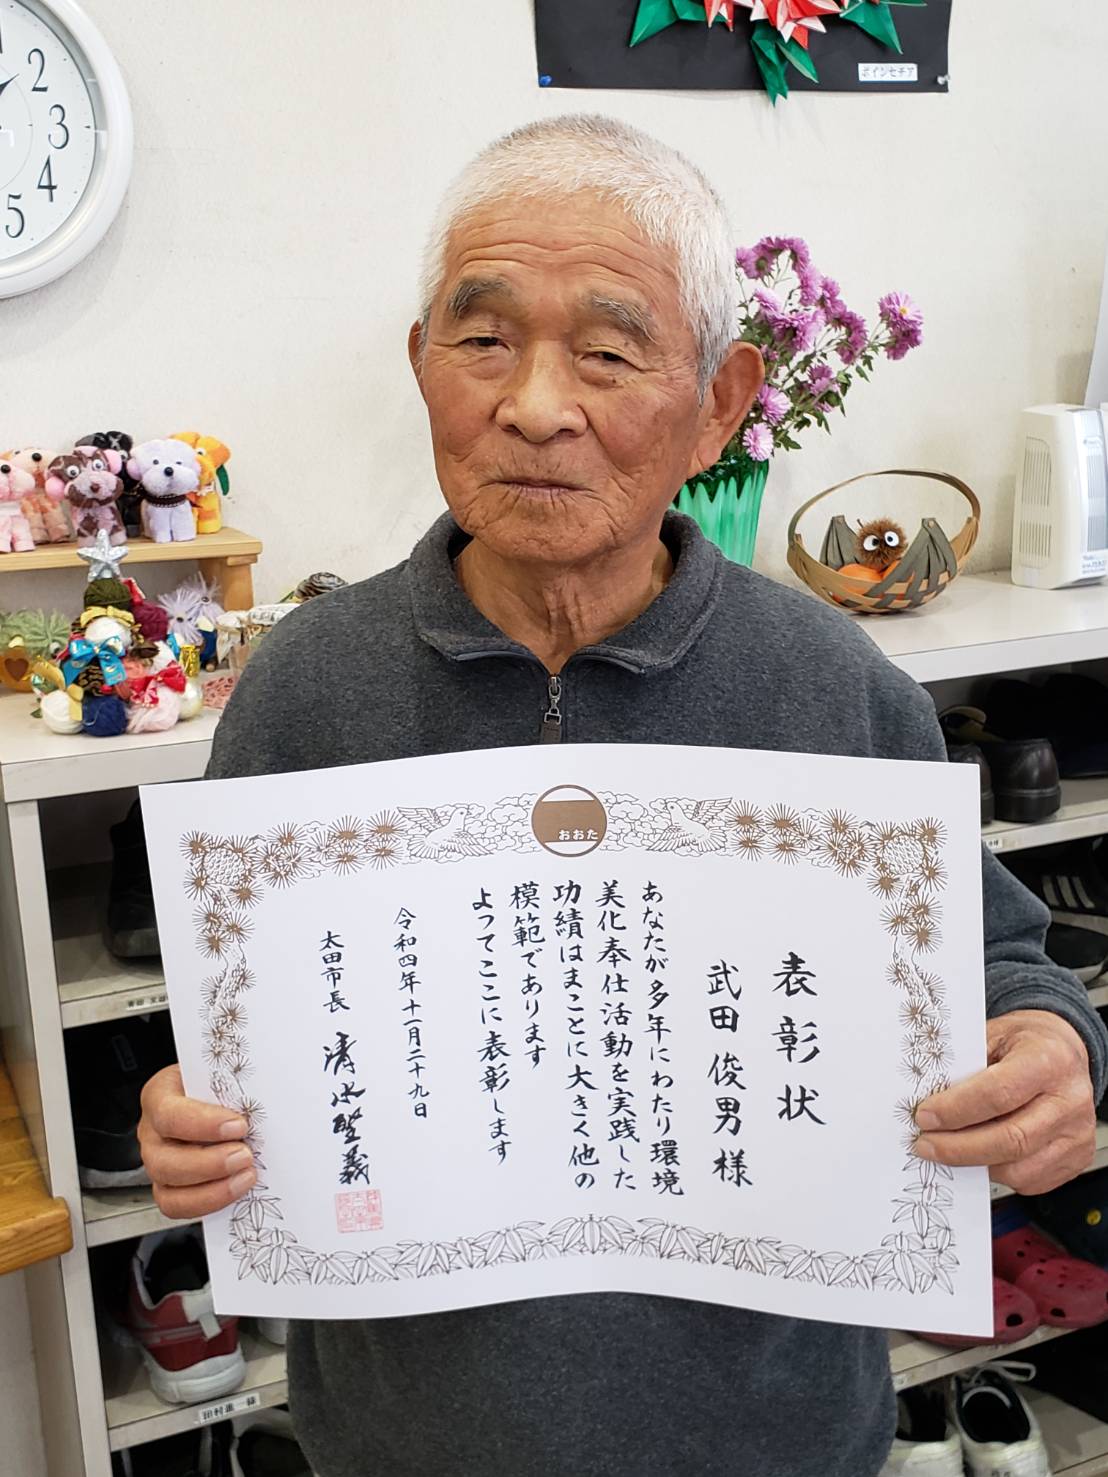 2
3
4
5
ポインセチア
おおた
表彰状
武田俊男様
あなたが多年にわたり環境
美化奉仕活動を実践した
功績はまことに大きく他の
模範であります
よってここに表彰します
令和四年十一月二十九日
太田市長 清水聖義
田村進一様